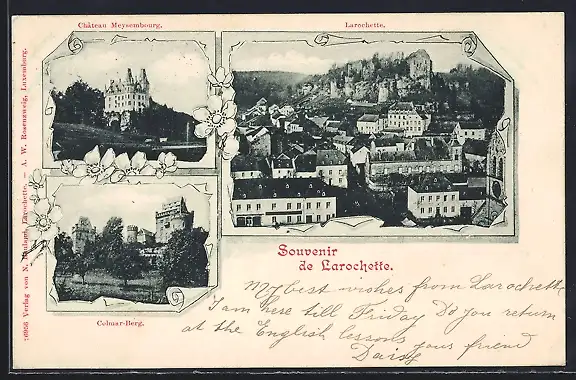 Château Meysembourg.
Larochette.
Colmar-Berg.
Souvenir
de Larochette.
My best wishes from Larochette
I am here till Friday Do you return
at the English lessons yours friend
Daisy
Verlag von N. Larochette. — A. W. Rosenzweig, Luxemburg.